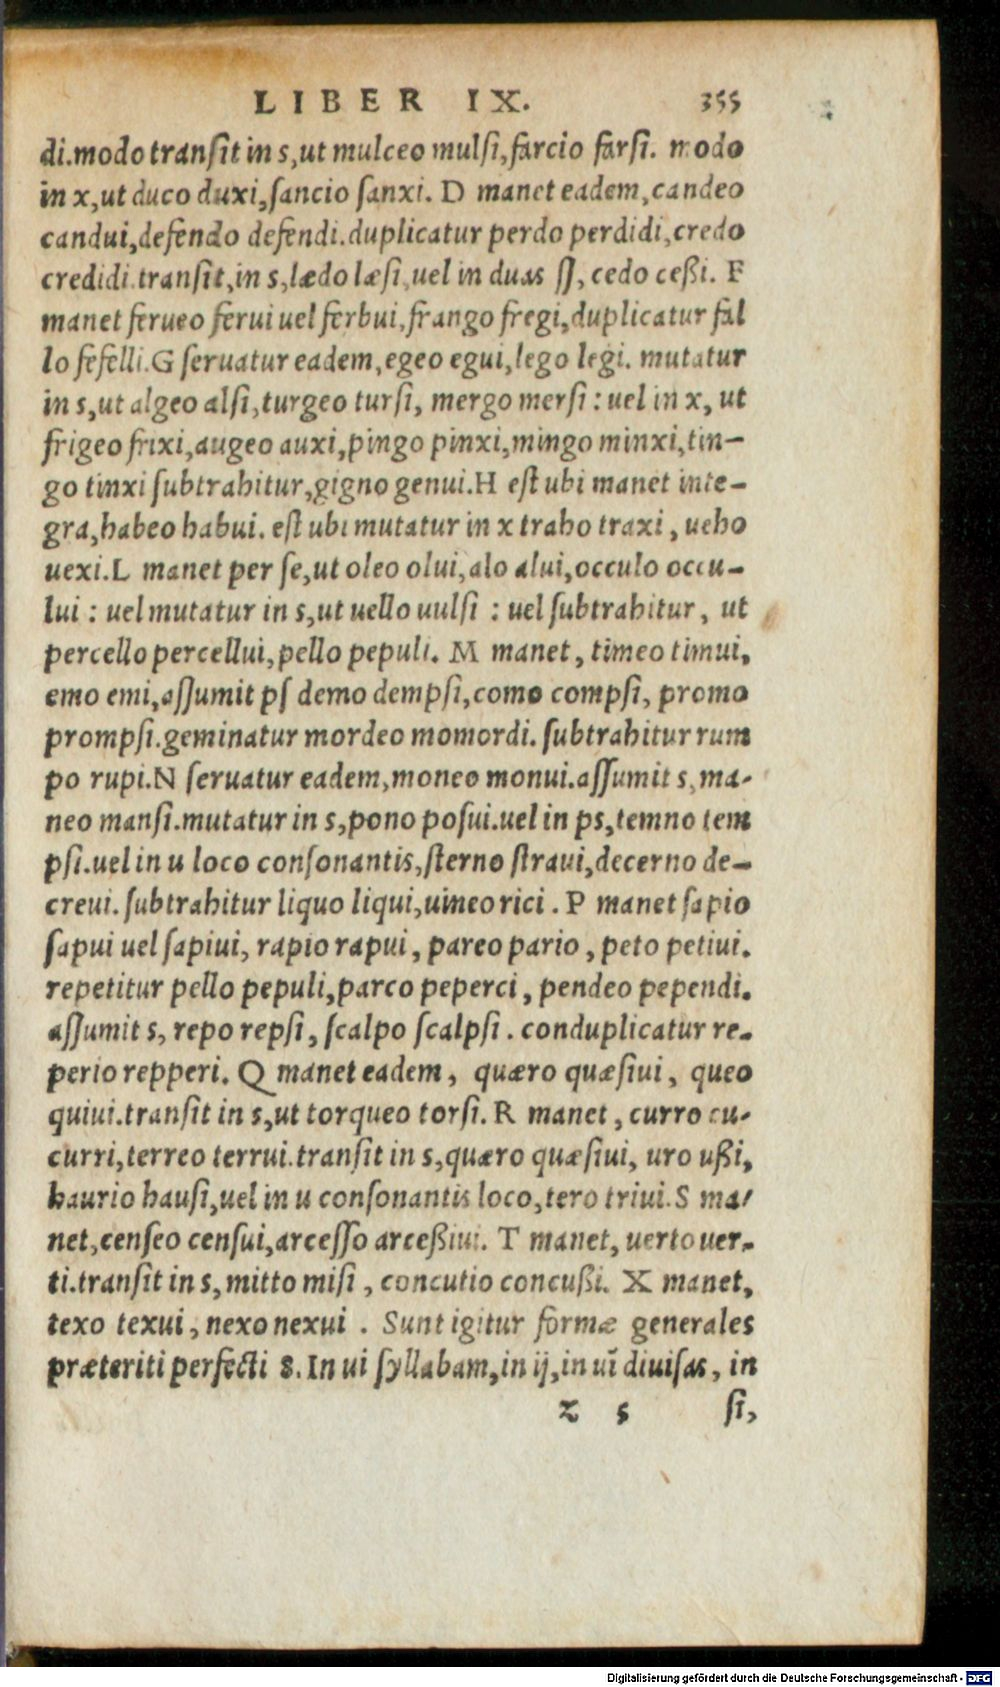 LIBER IX. 355
di.modo transit in s, ut mulceo mulsi, farcio farsi. modo
in x, ut duco duxi, sancio sanxi. D manet eadem, candeo
candui, defendo defendi. duplicatur perdo perdidi, credo
credidi. transit, in s, lædo læsi, uel in duas ss, cedo ceßi. F
manet ferueo ferui uel ferbui, frango fregi, duplicatur fal
lo fefelli. G seruatur eadem, egeo egui, lego legi. mutatur
in s, ut algeo alsi, turgeo tursi, mergo mersi : uel in x, ut
frigeo frixi, augeo auxi, pingo pinxi, mingo minxi, tin-
go tinxi subtrahitur, gigno genui. H est ubi manet inte-
gra, habeo habui. est ubi mutatur in x traho traxi, ueho
uexi. L manet per se, ut oleo olui, alo alui, occulo occu-
lui : uel mutatur in s, ut uello uulsi : uel subtrahitur, ut
percello percellui, pello pepuli. M manet, timeo timui,
emo emi, assumit ps demo dempsi, como compsi, promo
prompsi. geminatur mordeo momordi. subtrahitur rum
po rupi. N seruatur eadem, moneo monui. assumit s, ma-
neo mansi. mutatur in s, pono posui. uel in ps, temno tem
psi. uel in u loco consonantis, sterno straui, decerno de-
creui. subtrahitur liquo liqui, uineo rici. P manet sapio
sapui uel sapiui, rapio rapui, pareo pario, peto petiui.
repetitur pello pepuli, parco peperci, pendeo pependi.
assumit s, repo repsi, scalpo scalpsi. conduplicatur re-
perio repperi. Q manet eadem, quæro quæsiui, queo
quiui. transit in s, ut torqueo torsi. R manet, curro cu-
curri, terreo terrui. transit in s, quæro quæsiui, uro ußi,
haurio hausi, uel in u consonantis loco, tero triui. S ma-
net, censeo censui, arcesso arceßiui. T manet, uerto uer-
ti. transit in s, mitto misi, concutio concußi. X manet,
texo texui, nexo nexui. Sunt igitur formæ generales
præteriti perfecti 8. In ui syllabam, in ij, in uī diuisas, in
z 5 si,
Digitalisierung gefördert durch die Deutsche Forschungsgemeinschaft - DFG